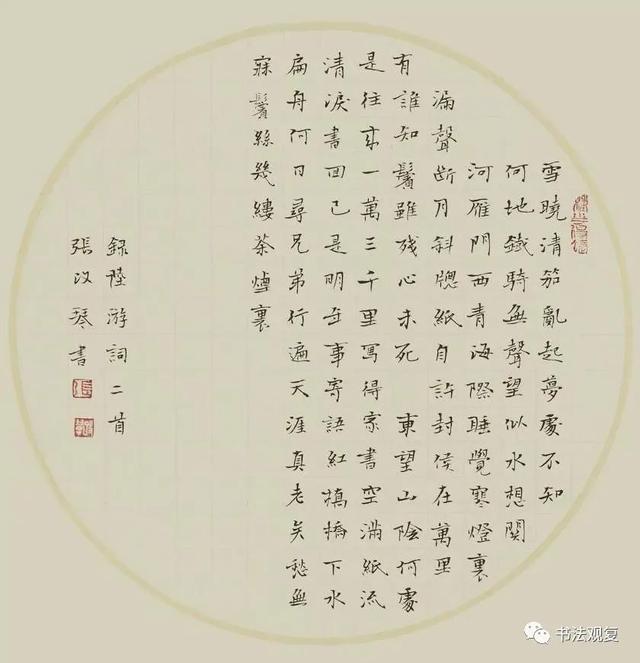 雪曉清笳亂起夢處不知
何地鐵騎無聲望似水想關
河雁門西青海際睡覺寒燈裏
漏聲斷月斜牕紙自許封侯在萬里
有誰知鬢雖残心未死 東望山陰何處
是往來一萬三千里寫得家書空滿紙流
清淚書回已是明年事寄語紅橋下水
扁舟何日尋兄弟行遍天涯真老矣愁無
寐鬢絲幾縷茶煙裏
錄陸游詞二首
張改琴書
书法观复